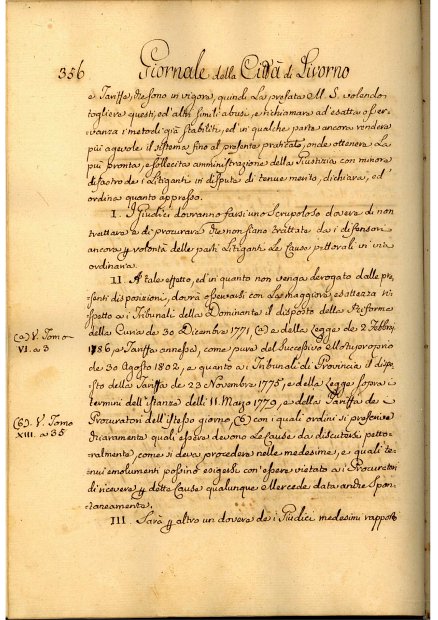 356 Giornale della Città di Livorno
e Tariffe, che sono in vigore, quindi La prefata M. S. volendo
togliere questi, ed altri simili abusi, e richiamare ad esatta osser-
vanza i metodi già stabiliti, ed in qualche parte ancora rendere
più agevole il sistema fino al presente praticato, onde ottenere La
più pronta, e sollecita amministrazione della Giustizia con minore
disastro de i Litiganti in dispute di tenue merito, dichiara, ed
ordina quanto appresso.
I. I Giudici dovranno farsi uno scrupoloso dovere di non
trattare e di procurare che non siano trattate da i difensori
ancora p volontà delle parti Litiganti Le Cause pettorali in via
ordinaria.
II. A tale effetto, ed in quanto non venga derogato dalle pre-
senti disposizioni, dovrà osservarsi con La maggiore esattezza ri-
spetto a i Tribunali della Dominante il disposto delle Riforme
della Curia de 30 Dicembre 1771, (a) e della Legge de 2 Febbraio
1786, e Tariffa annessa, come pure del Successivo Motuproprio
de 30 Agosto 1802, e quanto a i Tribunali di Provincia il dispo-
sto della Tariffa de 23 Novembre 1775, e della Legge sopra i
termini dell'Istanze delli 11 Marzo 1779, e della Tariffa de i
Procuratori dell'istesso giorno, (b) con i quali ordini si prescrive
chiaramente quali essere devono Le Cause da discutersi petto-
ralmente, come si deva procedere nelle medesime, e quali te-
nui emolumenti possino esigersi con essere vietato a i Procuratori
di ricevere p dette Cause qualunque Mercede data anche Spon-
taneamente.
III. Sarà p altro un dovere de i Giudici medesimi rapporto
(a) V. Tomo
VI. a 3
(b). V. Tomo
XIII. a 35